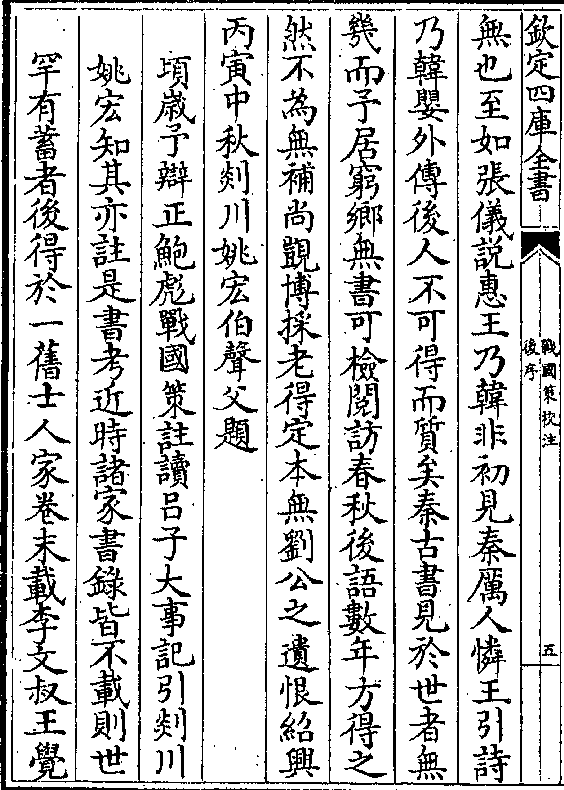 欽定四庫全書
戰國策校注
後序
五
無也至如張儀説惠王乃韓非初見秦厲人憐王引詩
乃韓嬰外傳後人不可得而質矣秦古書見於世者無
㡬而予居窮鄉無書可檢閱訪春秋後語數年方得之
然不為無補尚覬博採老得定本無劉公之遺恨紹興
丙寅中秋剡川姚宏伯聲父題
頃嵗予辯正鮑彪戰國策註讀吕子大事記引剡川
姚宏知其亦註是書考近時諸家書錄皆不載則世
罕有蓄者後得於一舊士人家卷末載李文叔王覺